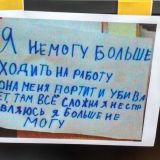 Я НЕМОГУ БОЛЬШЕ
ХОДИТЬ НА РАБОТУ
ОНА МЕНЯ ПОРТИТ И УБИВА
ЕТ, ТАМ ВСЁ СЛОЖНА Я НЕ СПР
ВЛЯЮСЬ Я БОЛЬШЕ НЕ
МОГУ